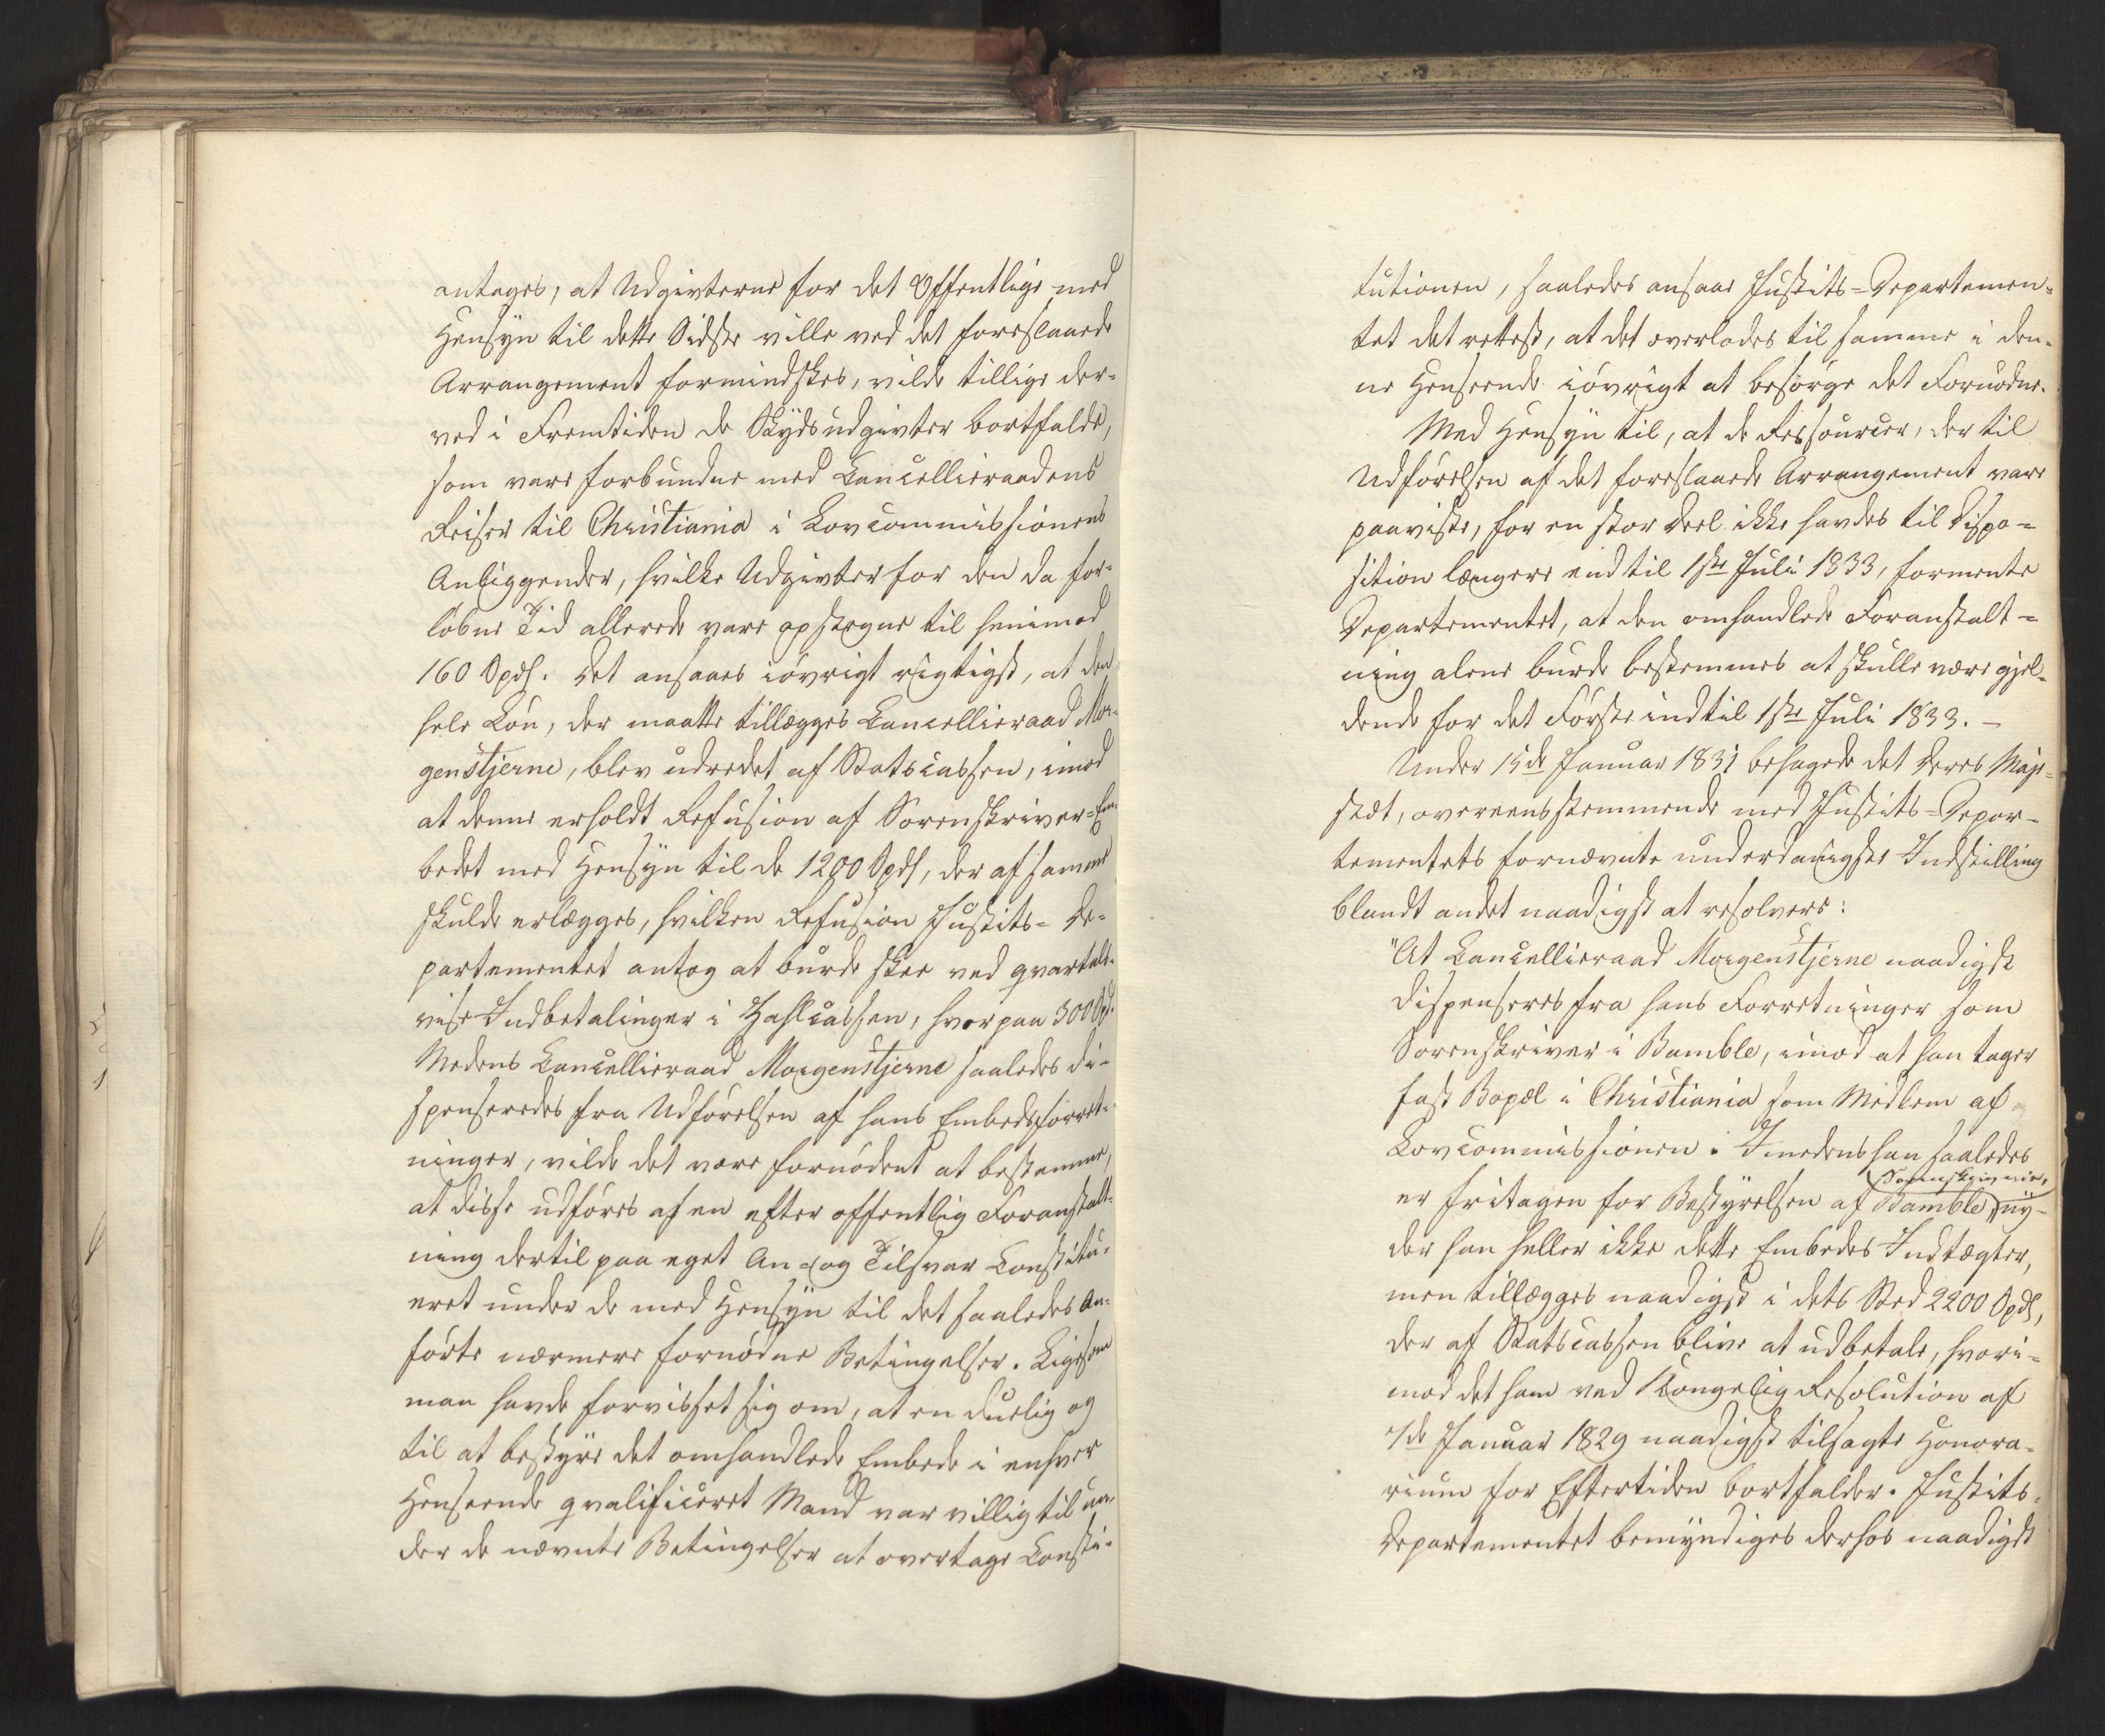 antages, at Udgivterne for det Offentlige med
Hensyn til dette Sidste ville ved det foreslaaede
Arrangement formindskes, vilde tillige der-
ved i Fremtiden de Skydsudgivter bortfalde,
som vare forbundne med Cancellieraadens
Reiser til Christiania i Lovcommissionens
Anliggender, hvilke Udgivter for den da for-
løbne Tid allerede vare opstegne til henimod
160 Spdl. Det ansaaes iøvrigt rigtigst, at den
hele Løn, der maatte tillægges Cancellieraad Mor-
genstjerne, blev udredet af Statscassen, imod
at denne erholdt Refusion af Sorenskriver-Em-
bedet med Hensyn til de 1200 Spdl, der af samme
skulde erlægges, hvilken Refusion Justits-De-
partementet antog at burde skee ved qvartals-
vise Indbetalinger i Zahlcassen, hver paa 300 Spd.
Medens Cancellieraad Morgenstjerne saaledes di-
spenseredes fra Udførelsen af hans Embedsforret-
ninger, vilde det være fornødent at bestemme,
at disse udføres af en efter offentlig Foranstalt-
ning dertil paa eget An- og Tilsvar Constitu-
eret under de med Hensyn til det saaledes An-
førte nærmere fornødne Betingelser. Ligesom
man havde forvisset sig om, at en duelig og
til at bestyre det omhandlede Embede i enhver
Henseende qvalificeret Mand var villig til un-
der de nævnte Betingelser at overtage Consti-
tutionen, saaledes ansaae Justits-Departemen-
tet det rettest, at det overlodes til samme i den-
ne Henseende iøvrigt at besørge det Fornødne.
Med Hensyn til, at de Ressourcer, der til
Udførelsen af det foreslaaede Arrangement vare
paaviste, for en stor Deel ikke havdes til Dispo-
sition længere end til 1ste Juli 1833, formente
Departementet, at den omhandlede Foranstalt-
ning alene burde bestemmes at skulle være gjel-
dende for det Første indtil 1ste Juli 1833. -
Under 15de Januar 1831 behagede det Deres Maje-
stæt, overeensstemmende med Justits-Depar-
tementets fornævnte underdanigste Indstilling
blandt andet naadigst at resolvere:
"At Cancellieraad Morgenstjerne naadigst
dispenseres fra hans Forretninger som
Sorenskriver i Bamble, imod at han tager
fast Bopæl i Christiania som Medlem af
Lovcommissionen. Imedens han saaledes
Sorenskriverie,
er fritagen for Bestyrelsen af Bamble ny-
der han heller ikke dette Embedes Indtægter,
men tillægges naadigst i dets Sted 2200 Spdl,
der af Statscassen blive at udbetale, hvori-
mod det ham ved Kongelig Resolution af
7de Januar 1829 naadigst tilsagte Honora-
rium for Eftertiden bortfalder. Justits-
Departementet bemyndiges derhos naadigst